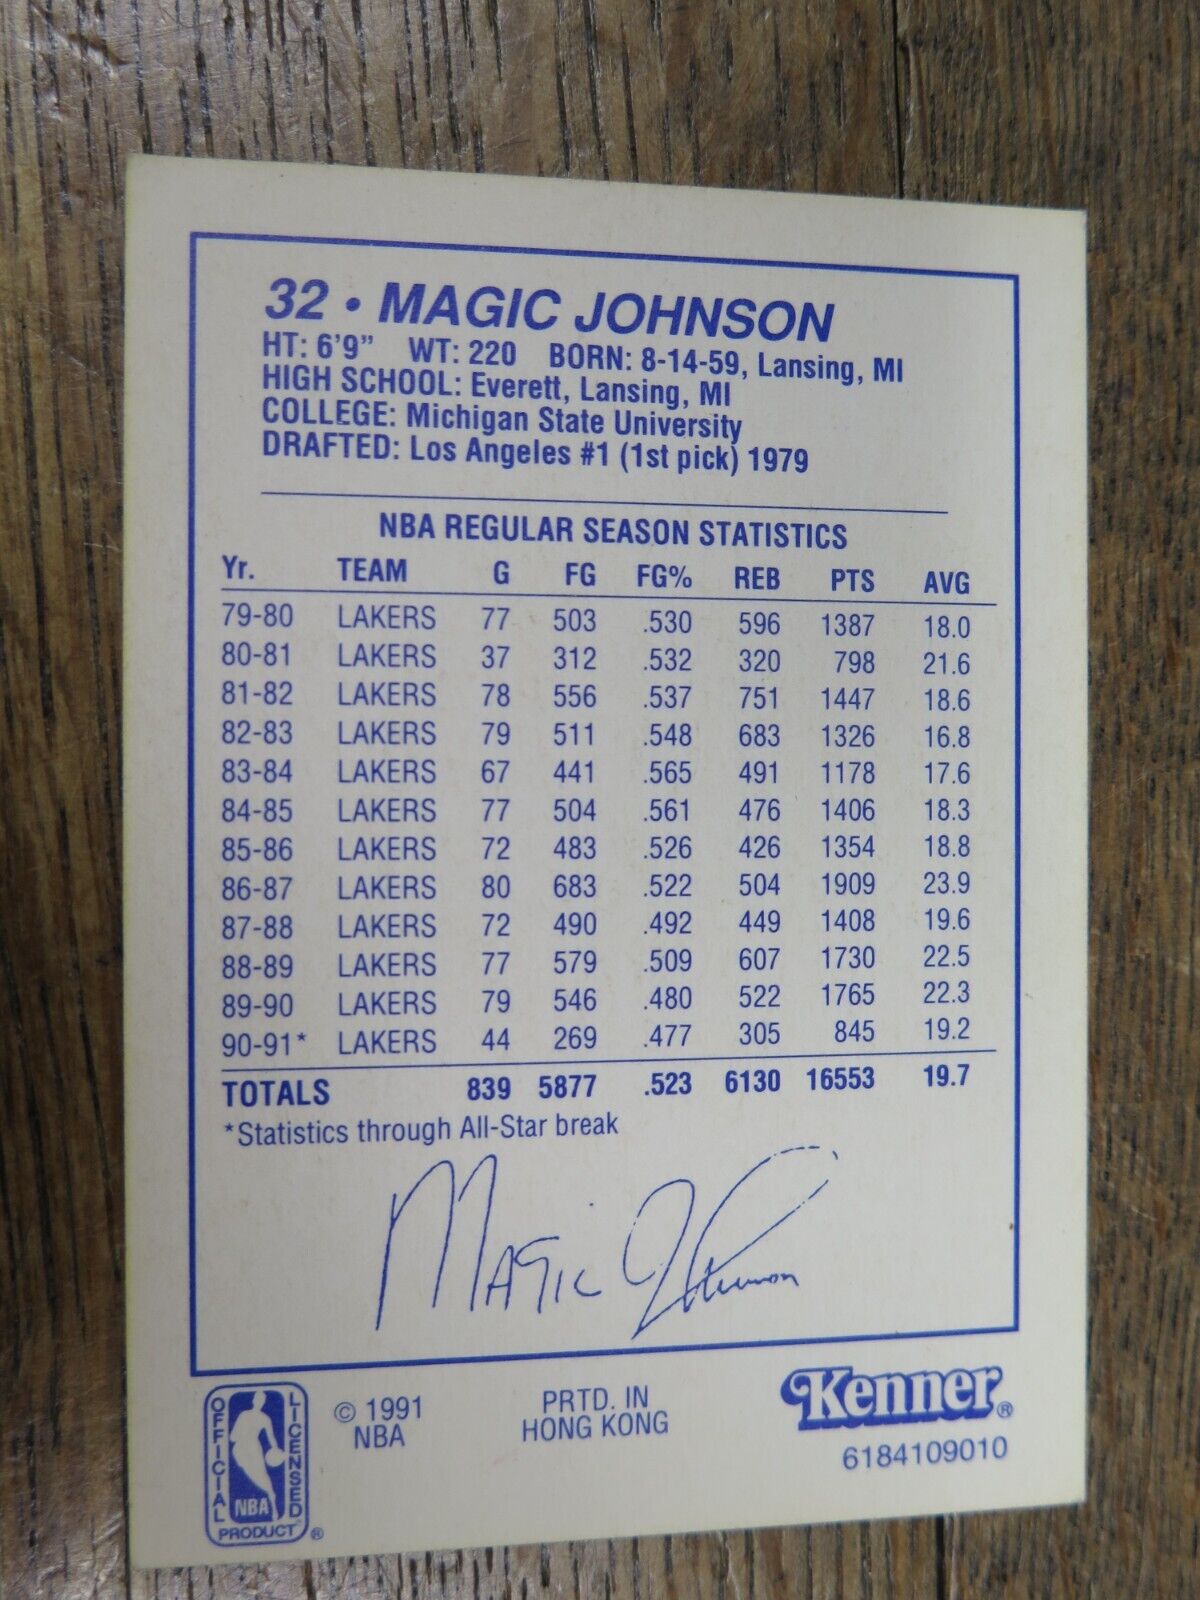 32 • MAGIC JOHNSON
HT: 6'9" WT: 220 BORN: 8-14-59, Lansing, MI
HIGH SCHOOL: Everett, Lansing, MI
COLLEGE: Michigan State University
DRAFTED: Los Angeles #1 (1st pick) 1979
NBA REGULAR SEASON STATISTICS
Yr. TEAM G FG FG% REB PTS AVG
79-80 LAKERS 77 503 .530 596 1387 18.0
80-81 LAKERS 37 312 .532 320 798 21.6
81-82 LAKERS 78 556 .537 751 1447 18.6
82-83 LAKERS 79 511 .548 683 1326 16.8
83-84 LAKERS 67 441 .565 491 1178 17.6
84-85 LAKERS 77 504 .561 476 1406 18.3
85-86 LAKERS 72 483 .526 426 1354 18.8
86-87 LAKERS 80 683 .522 504 1909 23.9
87-88 LAKERS 72 490 .492 449 1408 19.6
88-89 LAKERS 77 579 .509 607 1730 22.5
89-90 LAKERS 79 546 .480 522 1765 22.3
90-91* LAKERS 44 269 .477 305 845 19.2
TOTALS 839 5877 .523 6130 16553 19.7
*Statistics through All-Star break
Magic Johnson
OFFICIAL LICENSED
NBA
PRODUCT ®
© 1991
NBA
PRTD. IN
HONG KONG
Kenner®
6184109010